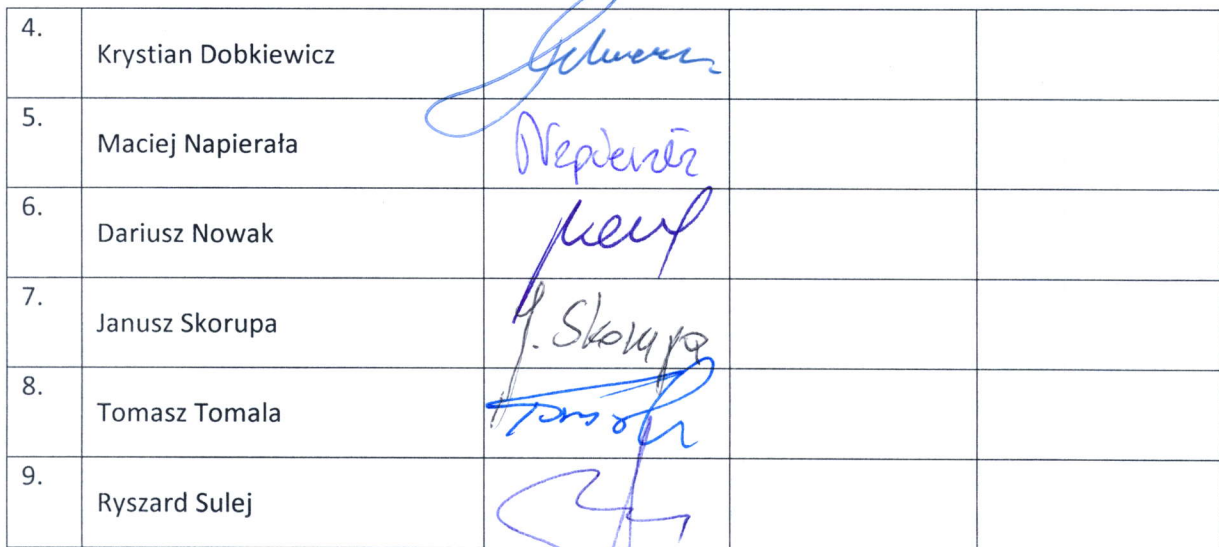 4.
Krystian Dobkiewicz
5.
Maciej Napierała
6.
Dariusz Nowak
7.
Janusz Skorupa J. Skorupa
8.
Tomasz Tomala
9.
Ryszard Sulej